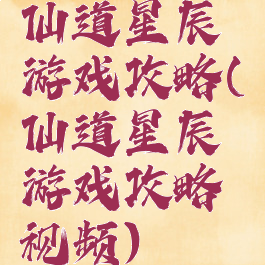 仙道星辰
游戏攻略(
仙道星辰
游戏攻略
视频)